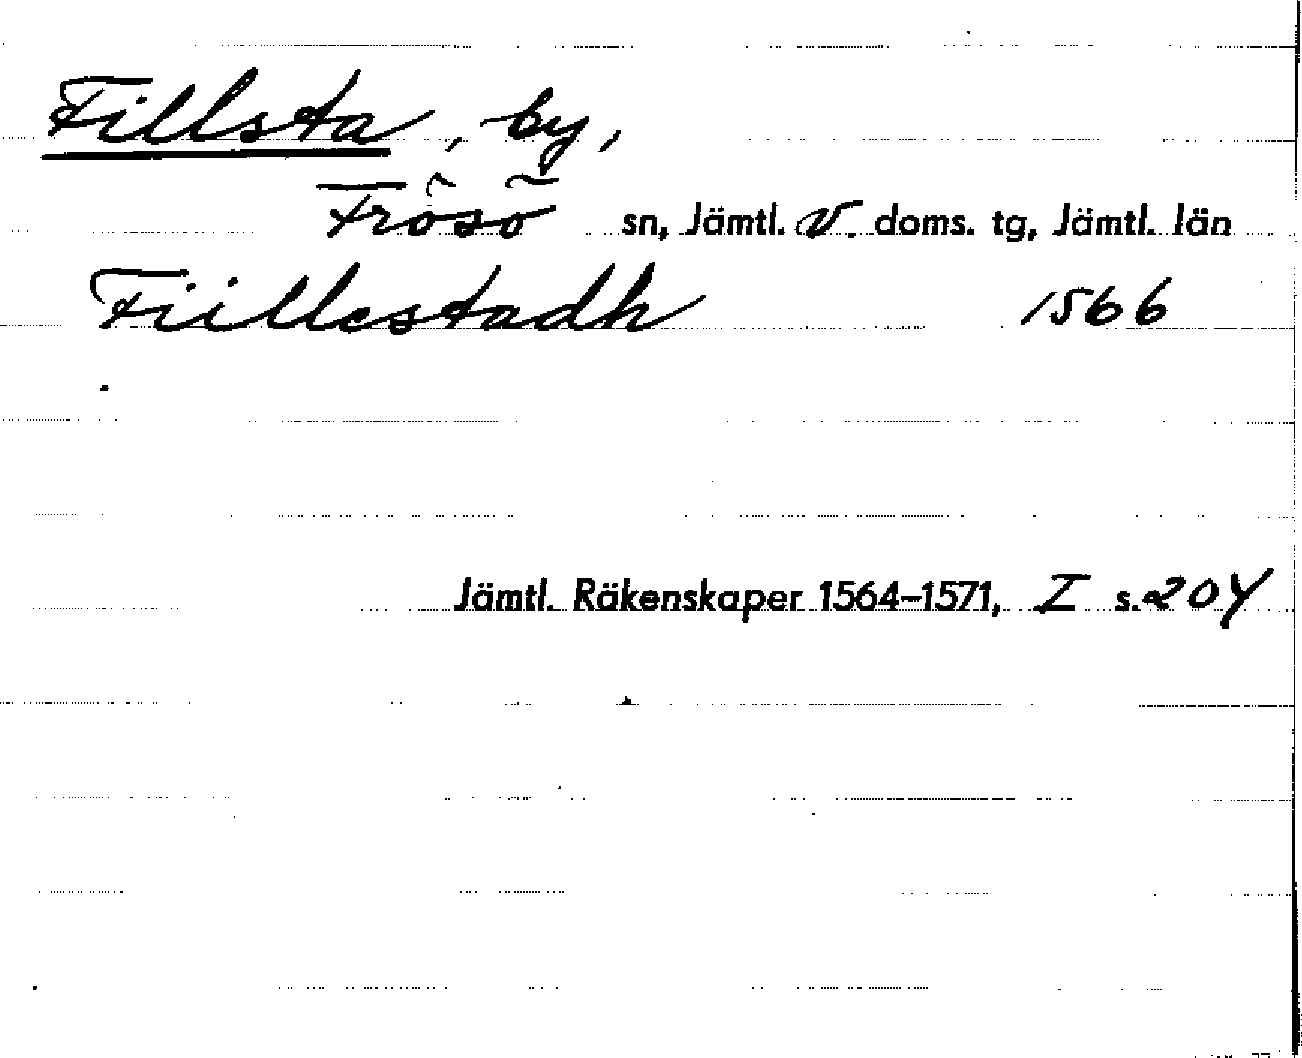 Fillsta, by,
Frösö sn, Jämtl. V. doms. tg, Jämtl. län
Fiillestadh 1566
Jämtl. Räkenskaper 1564–1571, I s. 204